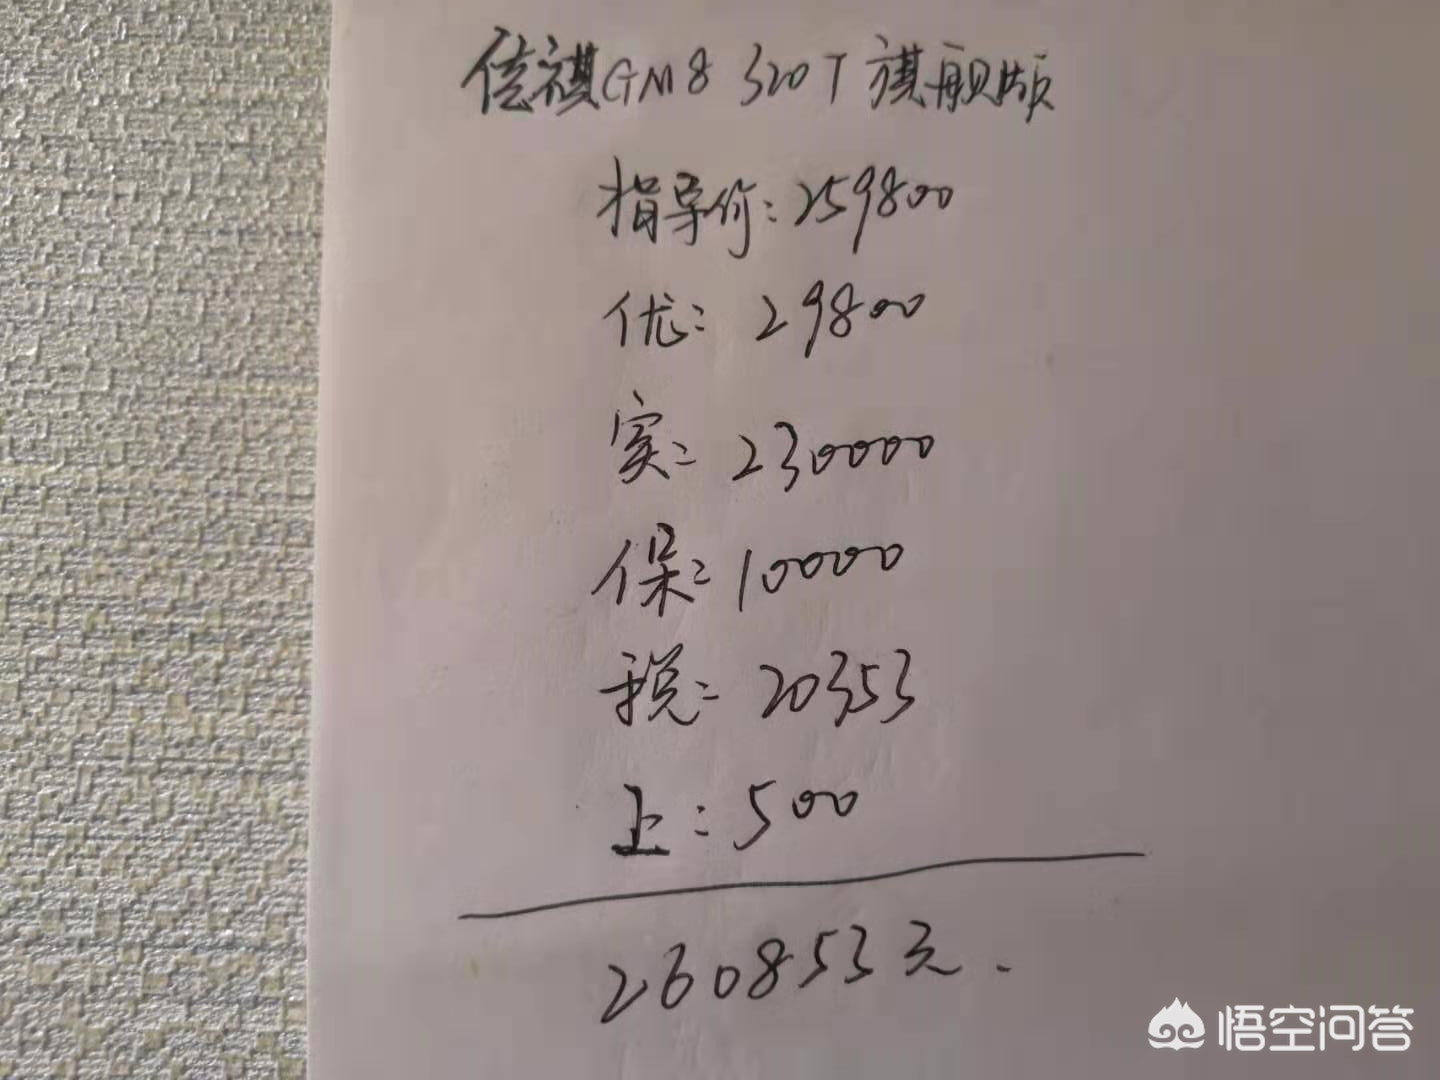 传祺GM8 320T 旗舰版
指导价:259800
优: 29800
实: 230000
保: 10000
税: 20353
上: 500
260853元.
悟空问答